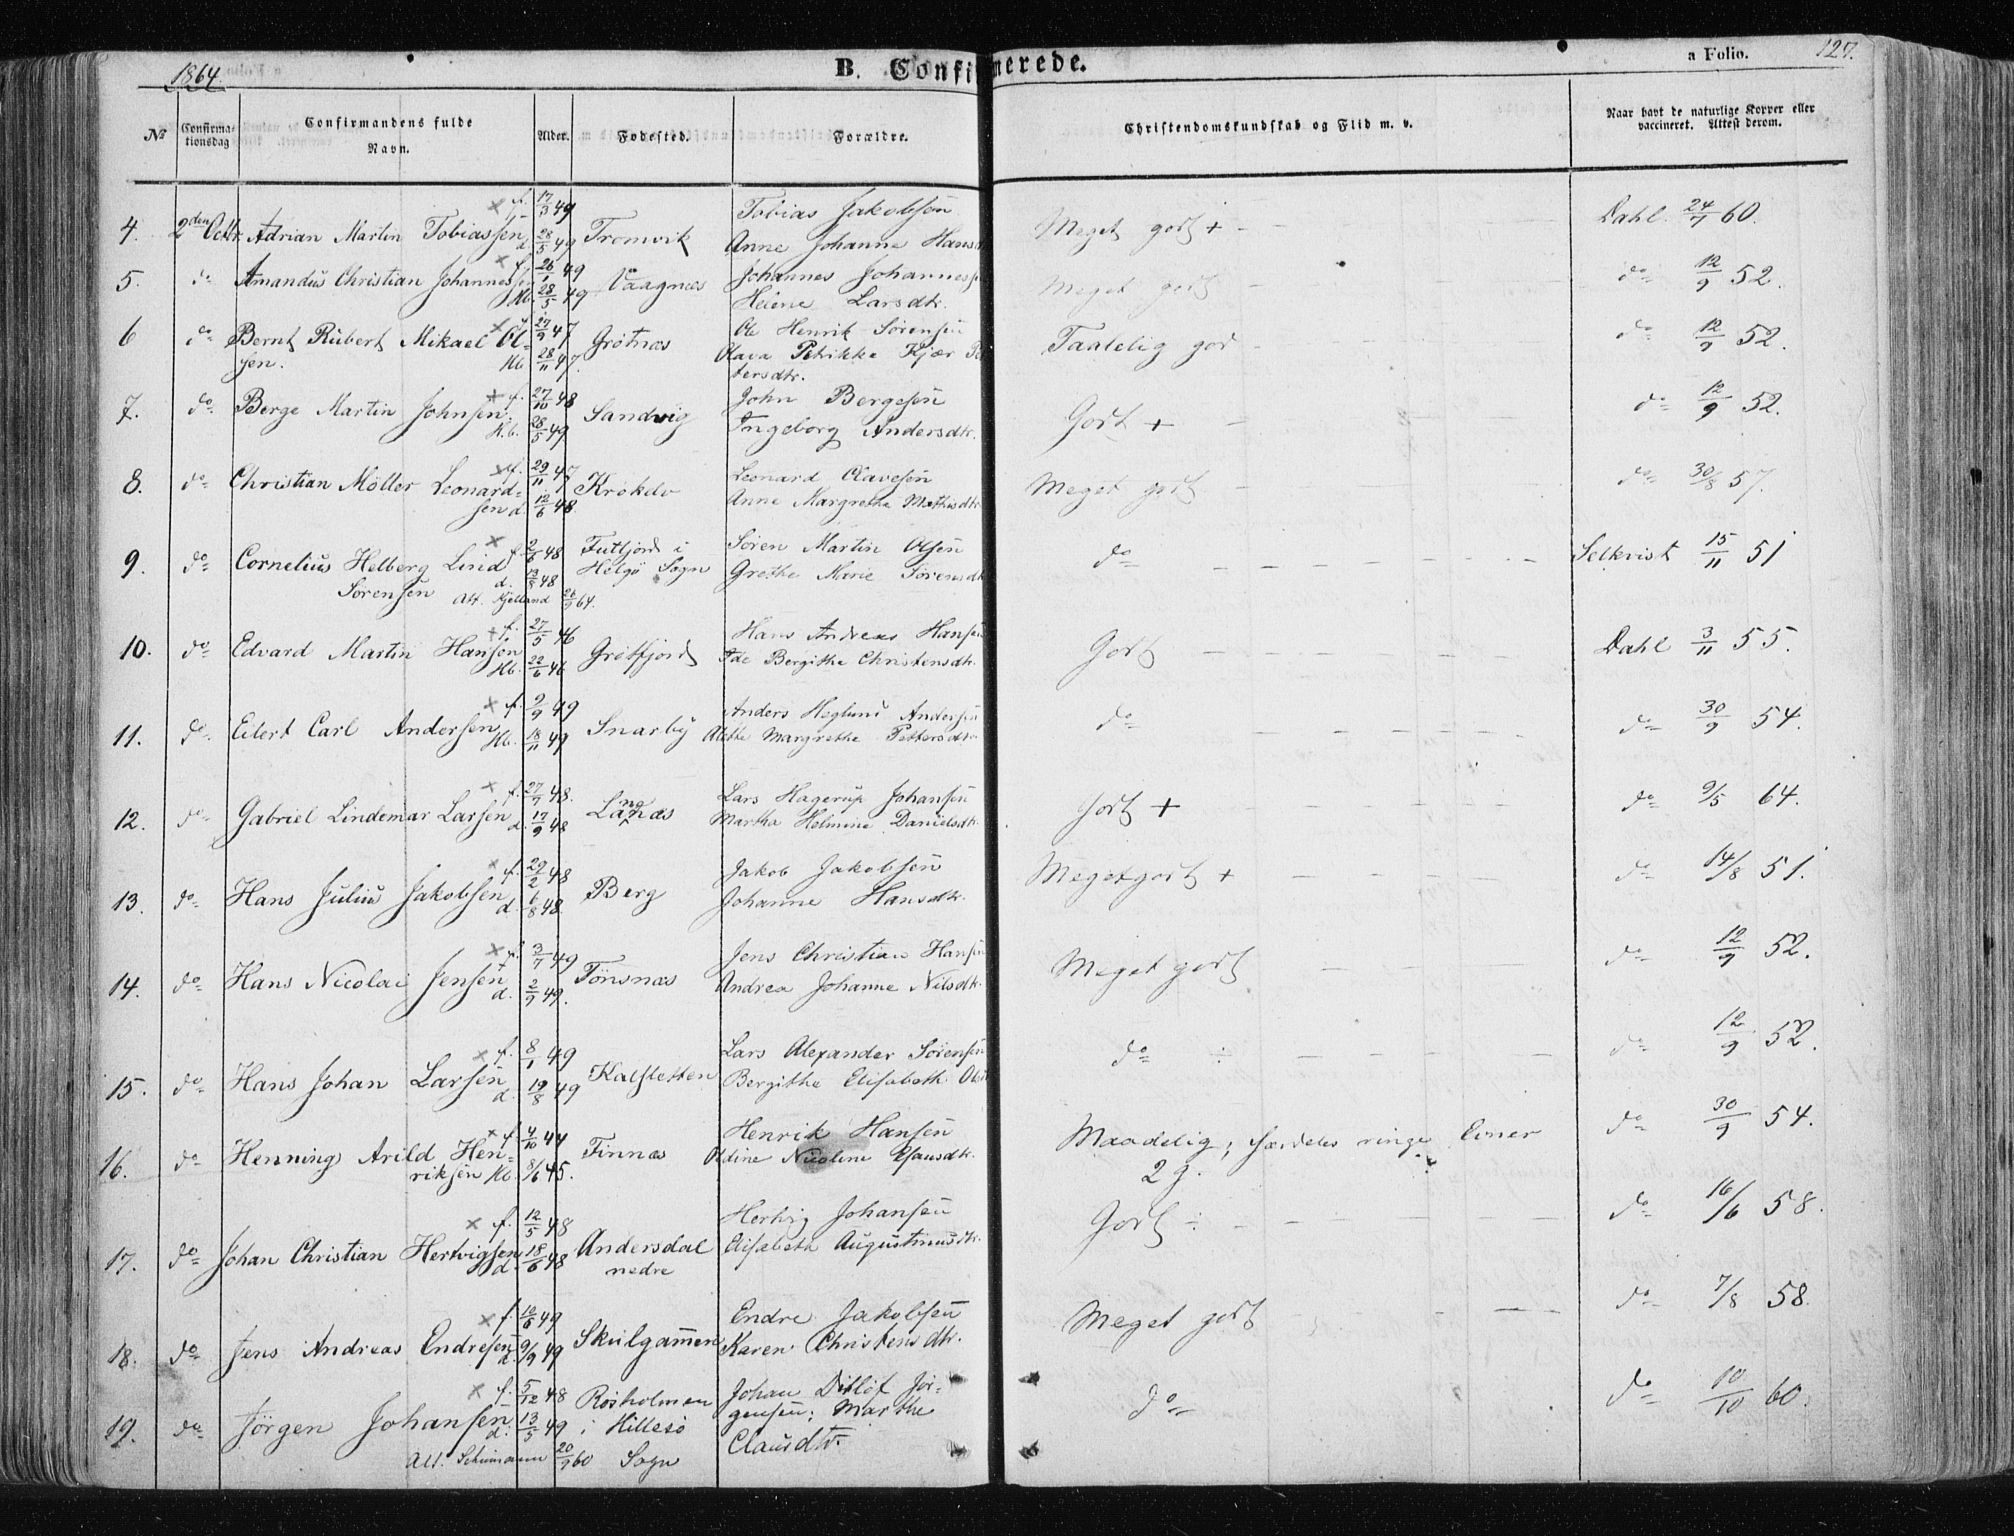 1864.
B. Confirmerede.
a Folio. 127.
No Confirmationsdag Confirmandens fulde Navn. Alder. Fødested. Forældre. Christendomskundskab og Flid m. v. Naar havt de naturlige Kopper eller vaccineret. Attest derom.
4. 2den Octbr. Adrian Martin Tobiassen f. 17/3 49 Tromvik Tobias Jakobsen Meget godt + Dahl 24/7 60.
d. 28/5 49 Anne Johanne Hansd
5. do Amandus Christian Johannessen f. 26/1 49 Vaagnæs Johannes Johannesse Meget godt do 12/9 52.
Hb. 28/5 49 Helene Larsdtr.
6 do Bernt Rubert Mikael Ol- f. 27/9 47 Grøtnæs Ole Henrik Sørensen Taalelig god do 12/9 52.
sen. Hb. 28/11 47. Olava Petrikke Kjær Pe
tersdtr.
7. do Berge Martin Johnsen f. 27/10 48 Sandvig John Bergesen Godt + do 12/9 52.
H.b. 28/5 49 Ingeborg Andersdtr.
8. do Christian Möller Leonard- f. 29/11 47 Krokelv Leonard Olavesen Meget godt do 30/8 57.
sen d. 12/6 48 Anne Margrethe Mathisdtr
9. do Cornelius Helberg Lind f. 2/6 48 Futtfjord i Søren Martin Olsen do Selkvist 15/11 51
Sørensen d. 13/8 48 Helgø Sogn Grethe Marie Sørensdt
Att. Kjelland 26/9 64.
10. do Edvard Martin Hansen f. 27/5 46 Grøtfjord Hans Andreas Hansen Godt Dahl 3/11 55.
Hb. 22/6 46 Ide Bergithe Christensdtr.
11. do Eilert Carl Andersen f. 9/9 49 Snarby Anders Heglund Andersen do do 30/9 54.
Hb. 18/11 49 Alette Margrethe Pettersdtr
12. do Gabriel Lindemar Larsen f. 27/7 48. Langnæs Lars Hagerup Johansen Godt + do 9/5 64.
d. 17/9 48 Martha Helmine Danielsdtr.
13. do Hans Julius Jakobsen f. 29/2 48 Berg Jakob Jakobsen Meget godt + do 14/8 51.
d. 6/8 48 Johanne Hansdtr.
14. do Hans Nicolai Jensen f. 3/7 49 Tønsnæs Jens Christian Hansen Meget godt do 12/9 52.
d. 2/9 49. Andrea Johanne Nilsdtr.
15. do Hans Johan Larsen f. 8/1 49 Kalsletten Lars Alexander Sørensen do ÷ do 12/9 52.
d. 19/8 49 Bergithe Elisabeth Ols
16. do Henning Arild Hen- f. 4/10 44 Finnæs Henrik Hansen Maadelig; særdeles ringe Evner do 30/9 54.
riksen Hb. 8/6 45. Oldine Nicoline Hansdtr. 2 g.
17. do Johan Christian Hertvigsen f. 12/5 48 Andersdal Hertvig Johansen Godt ÷ do 16/6 58.
d. 18/6 48 nedre Elisabeth Augustinusdtr.
18. do Jens Andreas Endresen f. 10/6 49 Skulgammen Endre Jakobsen Meget godt do 7/8 58.
d. 9/9 49 Karen Christensdtr.
19. do Jörgen Johansen f. 5/12 48 Rosholmen Johan Ditlöf Jör- do do 10/10 60.
d. 13/5 49 i Hillesø gensen; Marthe
Att. Schumann 20/9 60 Sogn Clausdtr.